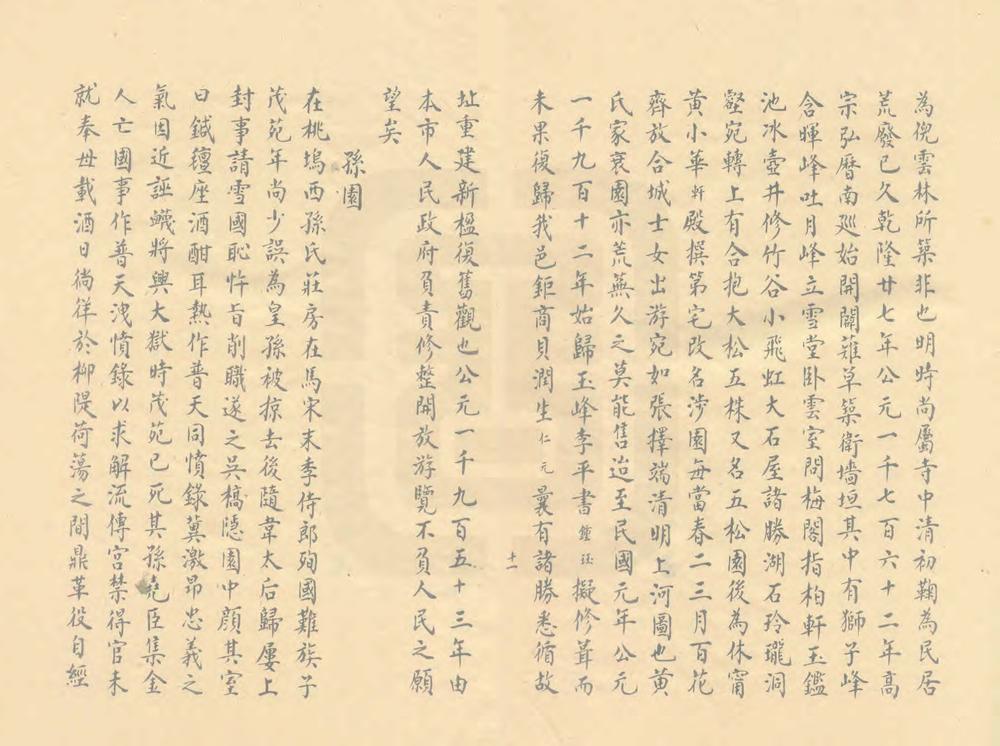 為倪雲林所築非也明時尚屬寺中清初鞠為民居
荒廢已久乾隆廿七年公元一千七百六十二年高
宗弘曆南廵始開闢薙草築衛墻垣其中有獅子峰
含暉峰吐月峰立雪堂卧雲室問梅閣指柏軒玉鑑
池冰壺井修竹谷小飛虹大石屋諸勝湖石玲瓏洞
壑宛轉上有合抱大松五株又名五松園後為休甯
黃小華軒殿撰第宅改名涉園每當春二三月百花
齊放合城士女出游宛如張擇端清明上河圖也黃
氏家衰園亦荒蕪久之莫能售迨至民國元年公元
一千九百十二年始歸玉峰李平書鍾珏擬修葺而
未果復歸我邑鉅商貝潤生仁元曩有諸勝悉循故
十一
址重建新楹復舊觀也公元一千九百五十三年由
本市人民政府負責修整開放游覽不負人民之願
望矣
孫園
在桃塢西孫氏莊房在馬宋末季侍郎殉國難族子
茂苑年尚少誤為皇孫被掠去後隨韋太后歸屢上
封事請雪國恥忤旨削職遂之吳橋隱園中顏其室
曰鋮䥊座酒酣耳熱作普天同憤錄冀激昂忠義之
氣因近誣衊將興大獄時茂苑已死其孫堯臣集金
人亡國事作普天洩憤錄以求解流傳宮禁得官未
就奉母載酒日徜徉於柳隄荷蕩之間鼎革役自經